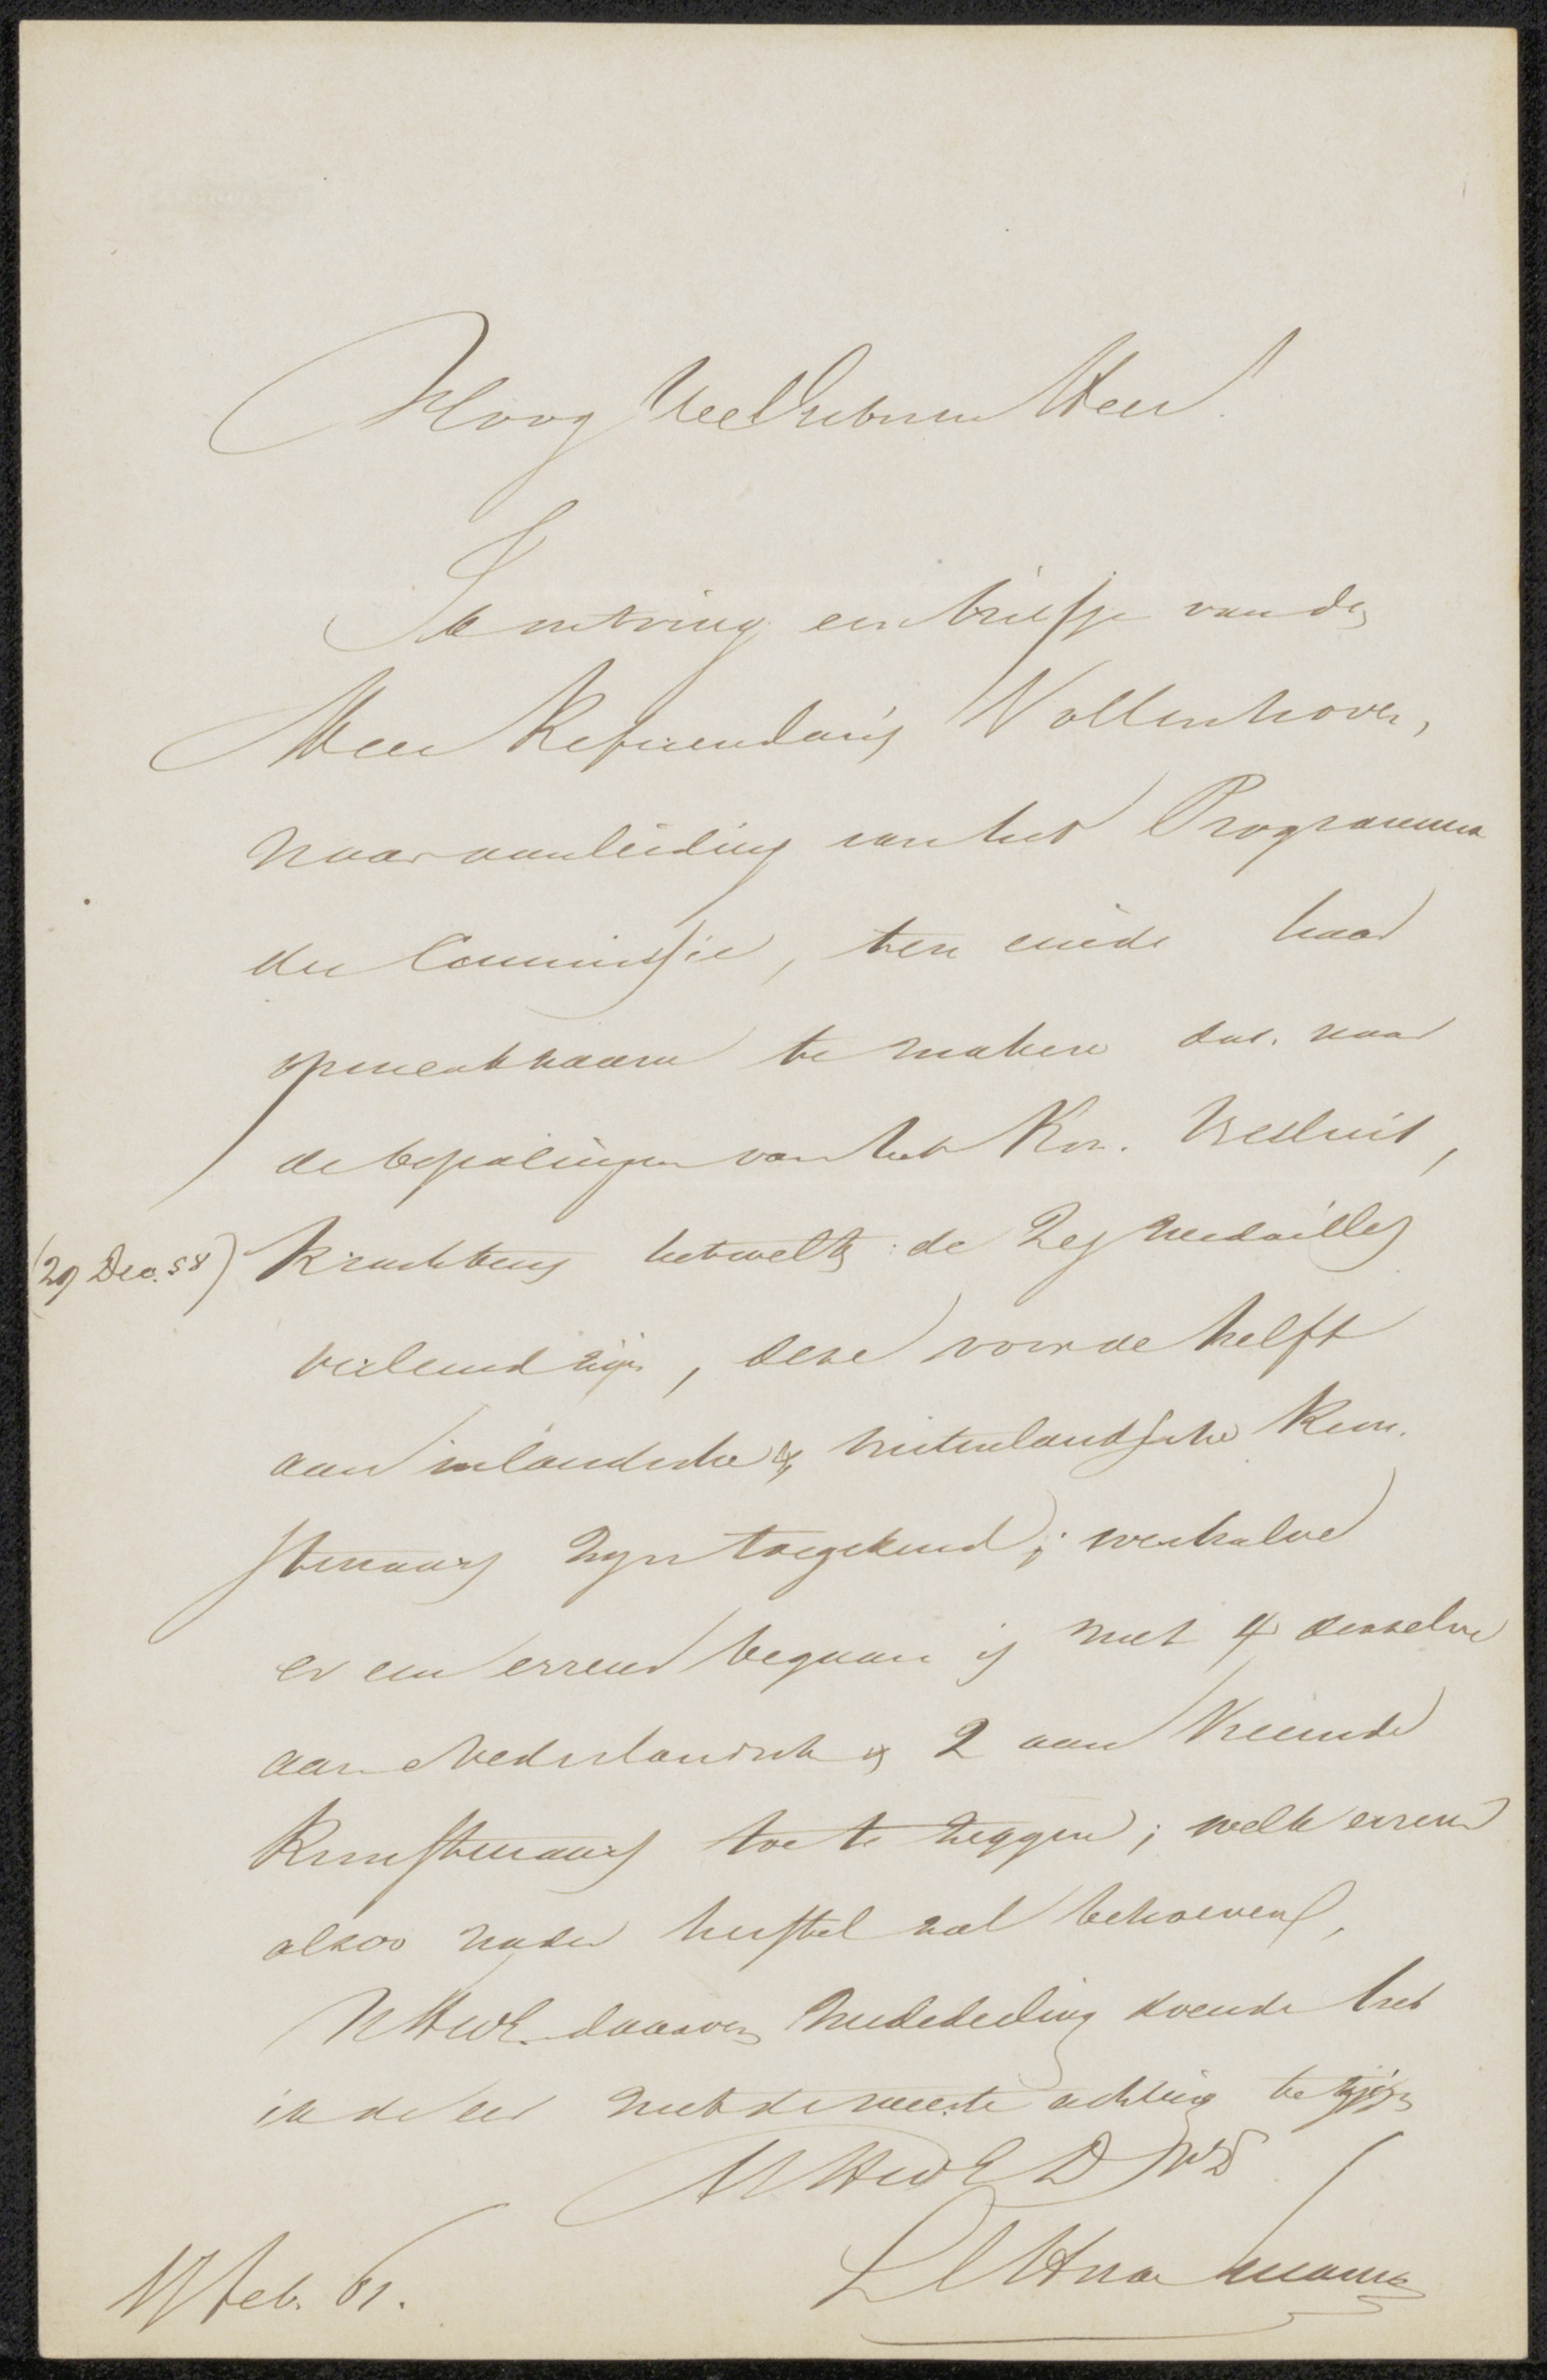 Hoog WelGeboren Heer!
Ik ontving een briefje van de
Heer Referendaris Vollenhoven,
naar aanleiding van het Programma
der Commissie, ten einde haar
opmerkzaam te maken dat naar
de bepalingen van het Kon. Besluit,
(29 Dec. 58) krachtens hetwelk de Zes medailles
verleend zijn, deze voor de helft
aan inlandsche & buitenlandsche Kun-
stenaars zijn toegekend; weshalve
er een erreur begaan is met 4 derzelve
aan Nederlandsche & 2 aan Vreemde
Kunstenaars toe te zeggen; welke erreur
alzoo nader herstel zal behoeven.
UHWE. daarvan mededeeling doende heb
ik de eer met de meeste achting te zijn
UHWE D W D
17 feb. 61.